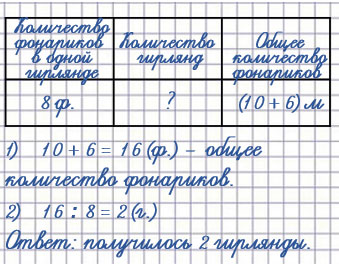 Количество фонариков в одной гирлянде
Количество гирлянд
Общее количество фонариков
8 ф.
?
(10 + 6) м
1) 10 + 6 = 16 (ф.) – общее
количество фонариков.
2) 16 : 8 = 2 (г.)
Ответ: получилось 2 гирлянды.